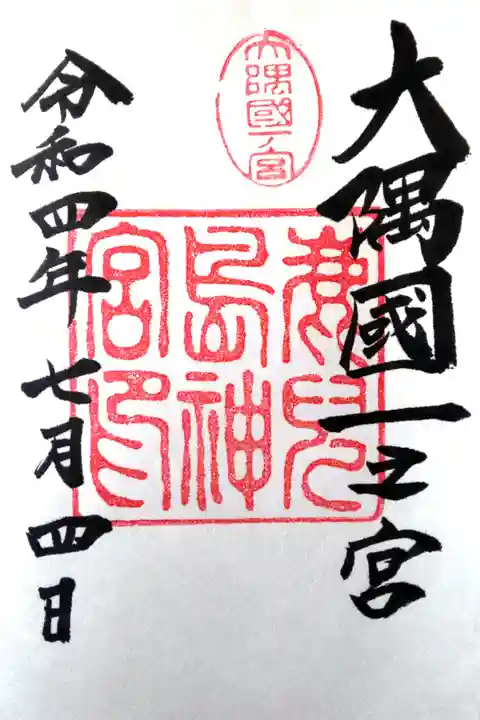 大隅國一之宮
大隅國一ノ宮
鹿兒
島神
宮印
令和四年 七月 四日